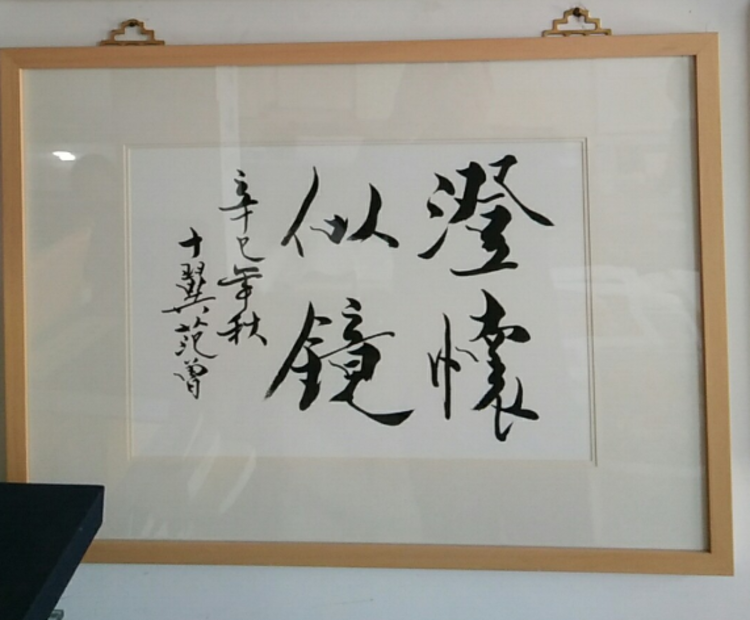 澄懷
似鏡
辛巳年秋
十翼范曾